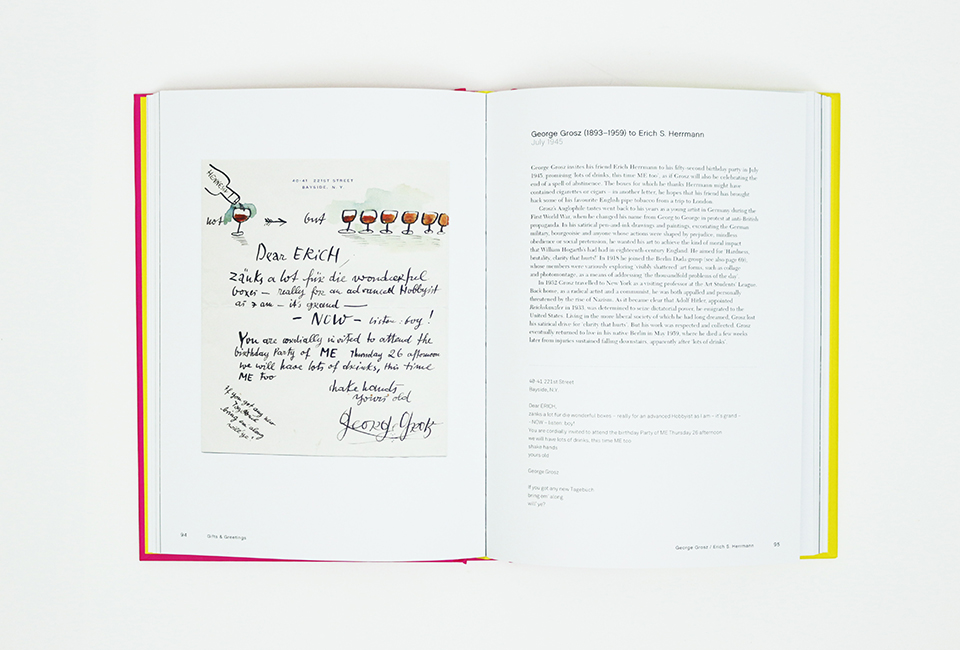 40-41 221ST STREET
BAYSIDE, N.Y.
not but
Dear ERICH
zänks a lot für die woonderful
boxes – really for an advanced Hobbyist
as I am – it's grand —
– NOW – listen : boy !
You are cordially invited to attend the
birthday Party of ME Thursday 26 afternoon
we will have lots of drinks, this time
ME too
shake hands
yours old
George Grosz
If you got any new
Tagebuch
bring em along
will ye?
94 Gifts & Greetings
George Grosz (1893–1959) to Erich S. Herrmann
July 1945
George Grosz invites his friend Erich Herrmann to his fifty-second birthday party in July
1945, promising 'lots of drinks, this time ME too', as if Grosz will also be celebrating the
end of a spell of abstinence. The boxes for which he thanks Herrmann might have
contained cigarettes or cigars – in another letter, he hopes that his friend has brought
back some of his favourite English pipe tobacco from a trip to London.
Grosz's Anglophile tastes went back to his years as a young artist in Germany during the
First World War, when he changed his name from Georg to George in protest at anti-British
propaganda. In his satirical pen-and-ink drawings and paintings, excoriating the German
military, bourgeoisie and anyone whose actions were shaped by prejudice, mindless
obedience or social pretension, he wanted his art to achieve the kind of moral impact
that William Hogarth's had had in eighteenth-century England. He aimed for 'Hardness,
brutality, clarity that hurts!' In 1918 he joined the Berlin Dada group (see also page 69),
whose members were variously exploring 'visibly shattered' art forms, such as collage
and photomontage, as a means of addressing 'the thousandfold problems of the day'.
In 1932 Grosz travelled to New York as a visiting professor at the Art Students' League.
Back home, as a radical artist and a communist, he was both appalled and personally
threatened by the rise of Nazism. As it became clear that Adolf Hitler, appointed
Reichskanzler in 1933, was determined to seize dictatorial power, he emigrated to the
United States. Living in the more liberal society of which he had long dreamed, Grosz lost
his satirical drive for 'clarity that hurts'. But his work was respected and collected. Grosz
eventually returned to live in his native Berlin in May 1959, where he died a few weeks
later from injuries sustained falling downstairs, apparently after 'lots of drinks'.
40-41 221st Street
Bayside, N.Y.
Dear ERICH,
zänks a lot for die wonderful boxes – really for an advanced Hobbyist as I am – it's grand -
-NOW - listen: boy!
You are cordially invited to attend the birthday Party of ME Thursday 26 afternoon
we will have lots of drinks, this time ME too
shake hands
yours old
George Grosz
If you got any new Tagebuch
bring em' along
will ye?
George Grosz / Erich S. Herrmann 95